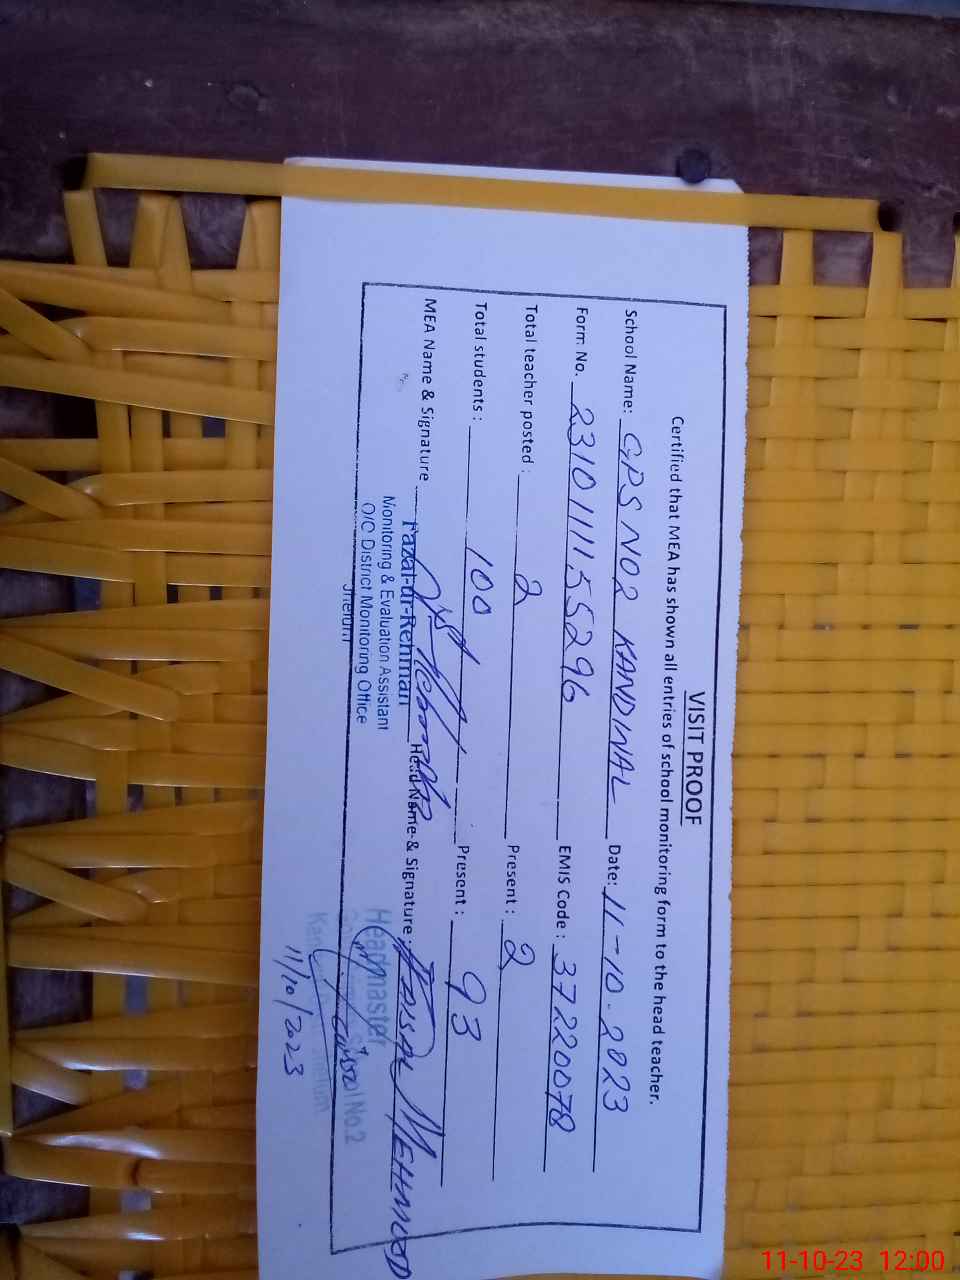 VISIT PROOF
Certified that MEA has shown all entries of school monitoring form to the head teacher.
School Name: GPS NO2 KANDIWAL Date: 11-10-2023
Form No. 2310111155296 EMIS Code: 37220078
Total teacher posted: 2 Present: 2
Total students: 100 Present: 93
MEA Name & Signature Head Name & Signature: MEHMOOD
Fazal-ur-Rehman
Monitoring & Evaluation Assistant
O/C District Monitoring Office
Jhelum
Headmaster
School No.2
Jhelum
11/10/2023
11-10-23 12:00